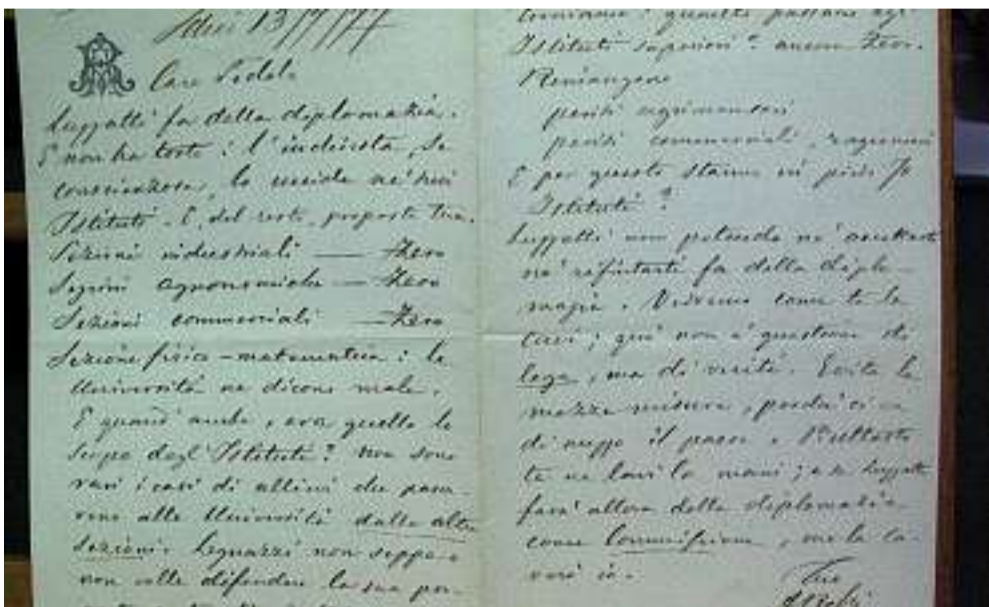 13/7/77
Caro Fedele
Luzzatti fa della diplomazia.
E non ha torto: l'inchiesta, se
coscienziosa, lo uccide ne' suoi
Istituti. E, del resto, proposta tua.
Sezioni industriali — Zero
Sezioni agronomiche — Zero
Sezioni commerciali — Zero
Sezione fisico-matematica: le
Università ne dicono male.
E quand'anche, era quello lo
scopo degl'Istituti? Non sono
rari i casi di allievi che
alle Università dalle altre
sezioni. non seppe o
non volle difendere la sua
Istituti superiori? ancora Zero.
Rimangono
periti agrimensori
periti commerciali, ragionieri
E per questo stanno in piedi
Istituti?
Luzzatti non potendo nè accettare
nè rifiutarti fa della diplo-
mazia. Vedremo come te la
cavi; quì non è questione di
lega, ma di verità. Evita le
mezze misure, perchè ci
di mezzo il paese. Piuttosto
te ne lavi le mani; e se Luzzatti
farà allora della diplomazia
come Commissione, me la ca-
verò io.
Tuo